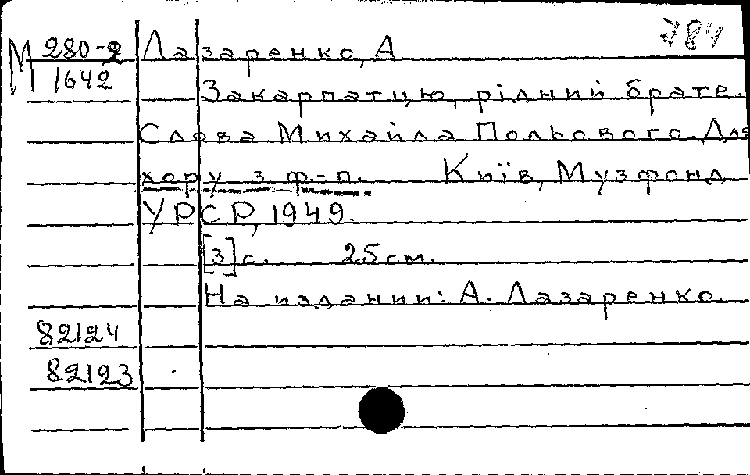 М 280-2 Лазаренко, А 784
1642
Закарпатцю, рідний брате.
Слова Михайла Польового. Для
хору з ф-п. Київ, Музфонд
УРСР, 1949.
[3] с. 25 см.
На издании: А. Лазаренко.
82124
82123